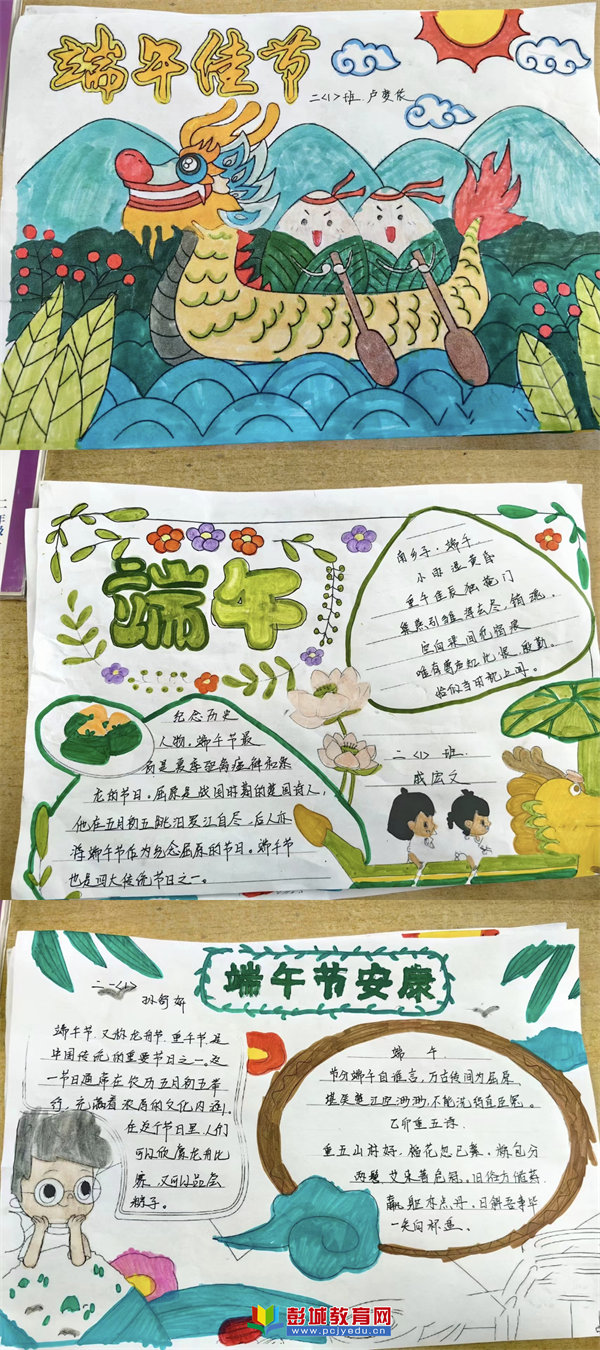 端午佳节
二〈1〉班.卢梦依
端午
南乡子·端午
小雨湿黄昏
重午佳辰独掩门
巢燕引雏浑去尽,销魂.
空向梁间觅宿痕
唯有
恰似当年枕上闻。
纪念历史
人物。端午节最
初是夏季驱离瘟神和祭
龙的节日。屈原是战国时期的楚国诗人,
他在五月初五跳汨罗江自尽,后人亦
将端午节作为纪念屈原的节日。端午节
也是四大传统节日之一。
二〈1〉班
成宏文
端午节安康
二〈1〉
端午节,又称龙舟节、重午节,是
中国传统的重要节日之一。这
一节日通常在农历五月初五举
行,充满着浓厚的文化内涵。
在这个节日里,人们
可以欣赏龙舟比
赛,又可以品尝
粽子。
端午
节分端午自谁言,万古传闻为屈原
堪笑楚江空渺渺,不能洗得直臣冤。
乙卯重五诗
重五山村好,榴花忽已繁。粽包分
两髻,艾束著危冠。旧俗方储药,
羸躯亦点丹。日斜吾事毕
一笑向杯盘。
彭城教育网
www.pcjyedu.cn